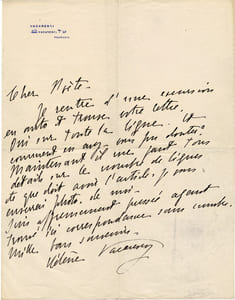 VACARESCI
Cher Poète -
Je rentre d'une excursion
en auto et trouve votre lettre.
Oui sur toute la ligne. Et
comment en avez vous pu douter?
Maintenant il me faut tous
détails sur le nombre de lignes
etc que doit avoir l'article. Je vous
enverrai photo. de moi.
Suis affreusement pressée ayant
trouvé ici correspondance sans nombre.
Mille bons souvenirs.
Hélène Vacaresco